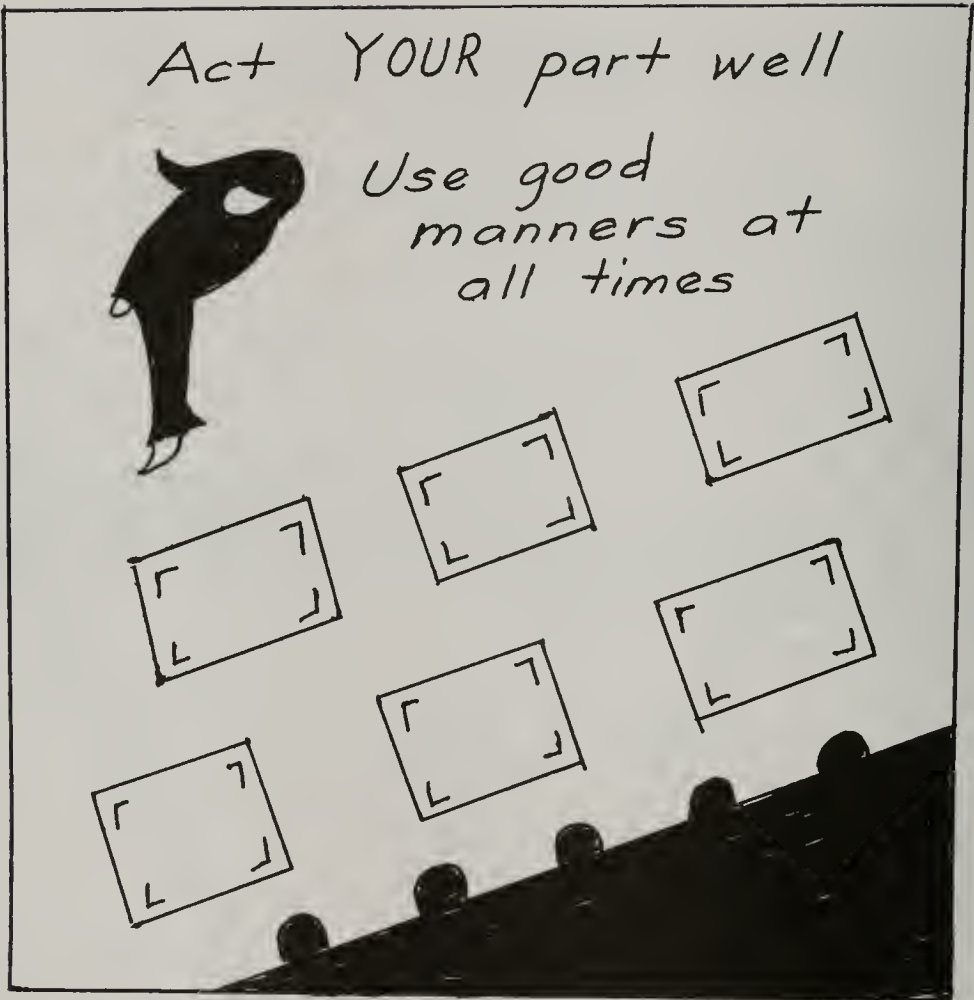 Act YOUR part well
Use good
manners at
all times